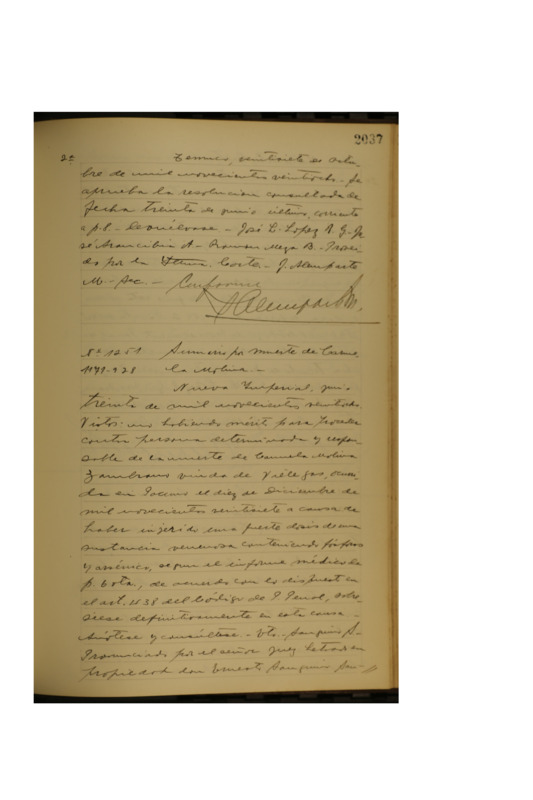 2037
2º Temuco, veintisiete de octu-
bre de mil novecientos veintiocho.- Se
aprueba la resolucion consultada de
fecha treinta de junio último, corriente
a p 8.- Devuélvase.- José L. López R.
Arancibia A.- Roman Mega B.- Provei-
do por la Iltma. Corte.- J. Alemparte
M.- Sec.- Conforme
J Alemparte M.
Nº 1251 Sumario por muerte de Carme-
la Molina.-
Nueva Imperial, junio
treinta de mil novecientos veintiocho.
Vistos: no habiendo mérito para proceder
contra persona determinada y respon-
sable de la muerte de Carmela Molina
Zambrano viuda de Villegas, ocurri-
da en el diez de Diciembre de
mil novecientos veintisiete a causa de
haber injerido una fuerte dosis de una
sustancia venenosa conteniendo fósforo
y arsénico, segun el informe médico de
p. 6 vta, de acuerdo con lo dispuesto en
el art. 438 del Código de P. Penal, sobre-
séese definitivamente en esta causa.-
Anótese y consúltese.- Vto.- Sanguino S.-
Pronunciado por el señor Juez Letrado en
propiedad don Ernesto Sanguino San-